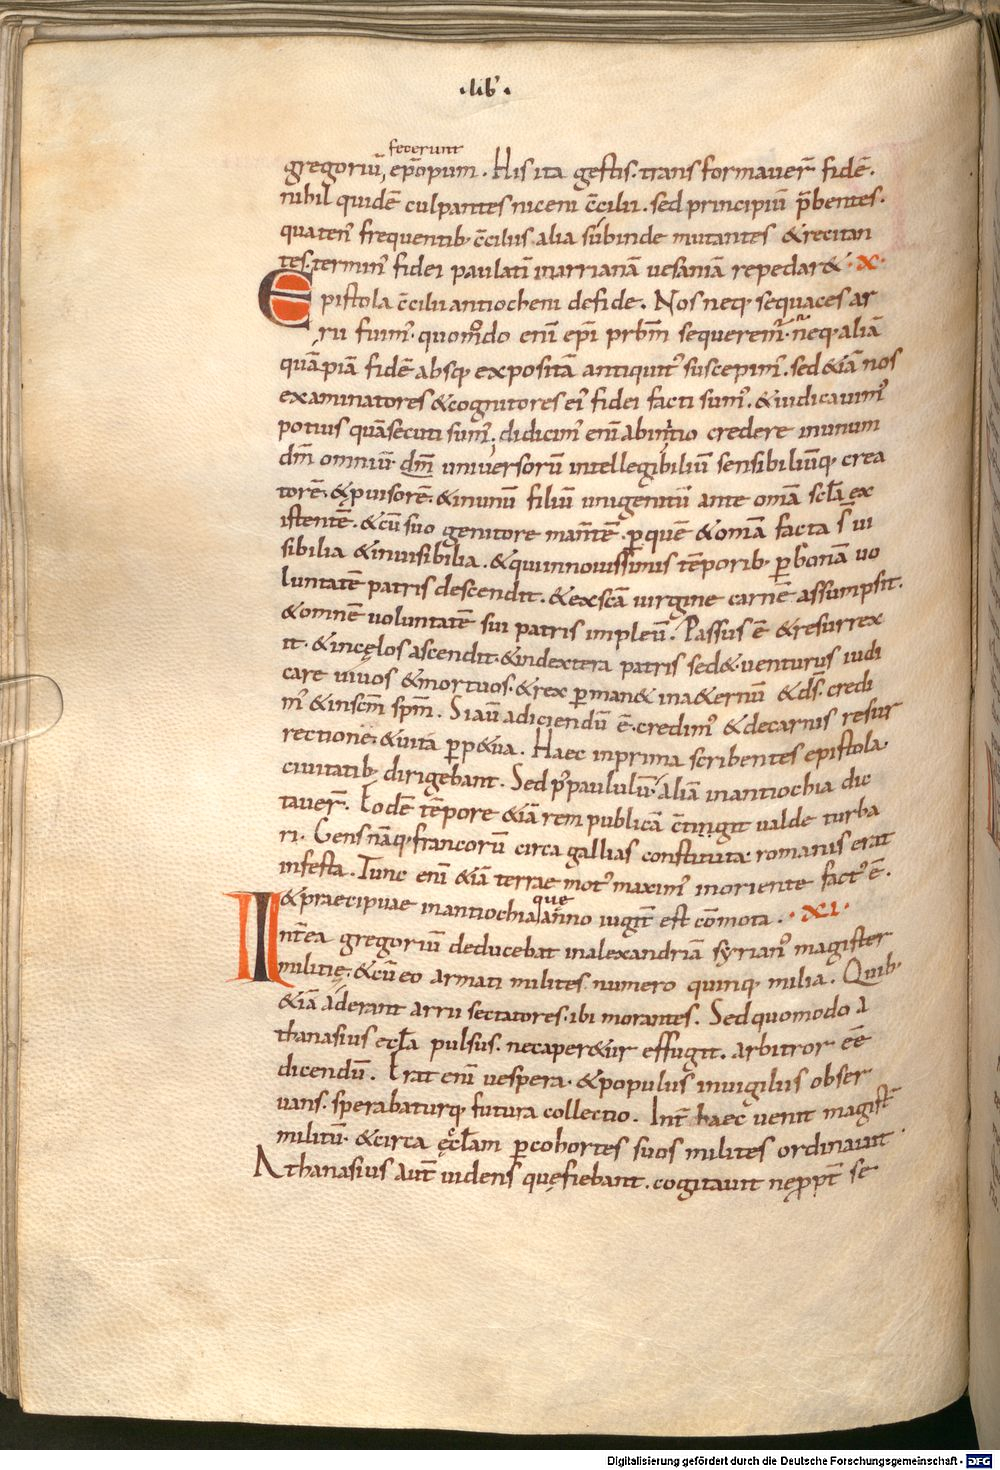 ·lib̄·
fecerunt
gregoriū, ep̄opum. His ita gestis. trans formauer̄ fidē.
nihil quidē culpantes niceni c̄cilii. sed principiū p̄bentes.
quaten᾿ frequentib; c̄ciliis alia subinde mutantes &recitan
tes. termin᾿ fidei paulati inarrianā uesaniā repedar&. ·X·
Epistola c̄cilii antiocheni defide. Nos neq; sequaces ar
rii fuim᾿. quom̊do eni ep̄i prb̄m sequerem᾿. neq; aliā
quā piā fidē absq; expositā antiquit᾿ suscepim᾿. sed &iā nos
examinatores &cognitores ei᾿ fidei facti sum᾿. &iudicauim᾿
potius quā secuti sum᾿. didicim᾿ eni abinitio credere inunum
dm̄ omniū. dm̄ uniuersorū intellegibiliū sensibiliūq; crea
torē. &ꝓuisorē. &inunū filiū unigenitū ante omā scl̄a ex
istentē. &cū suo genitore man̄tē. ꝑquē &omā facta s̄ ui
sibilia &inuisibilia. &quiinnouissimis tēporib; ꝑbonam uo
luntatē patris descendit. &exscā uirgine carnē assumpsit.
&omnē uoluntatē sui patris impleū. Passus ē &resurrex
it. &incęlos ascendit. &indextera patris sed&. uenturus iudi
care uiuos &mortuos. &rex ꝑman& ina&ernū &ds̄. credi
m᾿ &inscm̄ spm̄. Siaū adiciendū ē. credim᾿ &decarnis resur
rectione. &uita ꝑp&ua. Haec inprima scribentes epistola.
ciuitatib; dirigebant. Sed p᾿paululū. aliā inantiochia dic
tauer̄. Eodē tēpore &iā rem publicā c̄tingit ualde turba
ri. Gens nāq; francorū circa gallias constituta. romanis erat
infesta. Tunc eni &iā terrae mot᾿ maxim᾿ inoriente fact᾿ ē.
&praecipuae inantiochia quę anno iugit̄ est cōmota. ·XI·
Int̄ea gregoriū deducebat inalexandriā syrian᾿ magister
militię. &cū eo armati milites numero quinq; milia. Quib;
&iā aderant arrii sectatores. ibi morantes. Sed quomodo a
thanasius eccl̄a pulsus. necaper&ur effugit. arbitror eē
dicendū. Erat eni uespera. &populus inuigiliis obser
uans. sperabaturq; futura collectio. Int̄ haec uenit magist̄
militū. &circa ęccl̄am ꝑcohortes suos milites ordinauit.
Athanasius aūt uidens quęfiebant. cogitauit neꝓpt̄ se